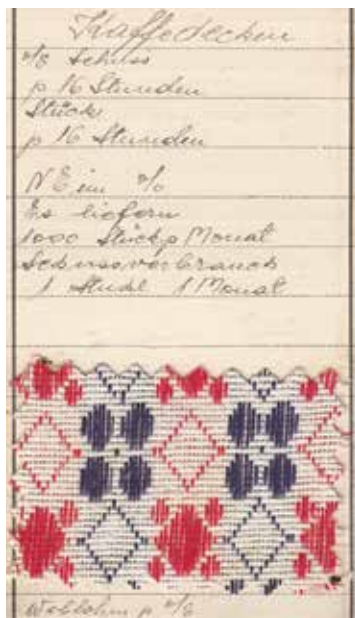 Kaffedecken
% Schuss
p 16 Stunden
Stücke
p 16 Stunden
NE im %
Es liefern
1000 Stück p Monat
Schussverbrauch
1 Stuhl 1 Monat
Weblohn p %